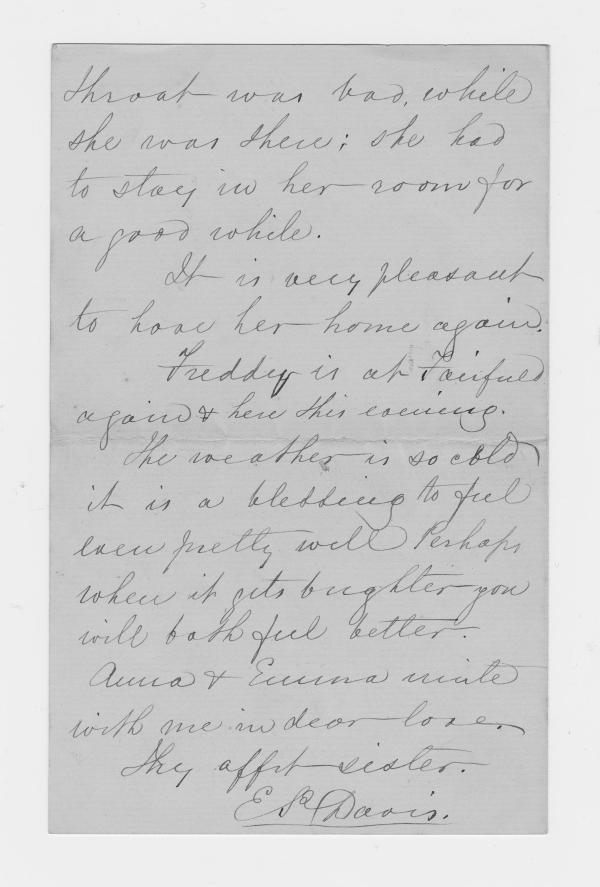 throat was bad, while
she was there; she had
to stay in her room for
a good while.
It is very pleasant
to have her home again.
Freddy is at Fairfield
again & here this evening.
The weather is so cold
it is a blessing to feel
even pretty well Perhaps
when it gets brighter you
will both feel better.
Anna & Emma unite
with me in dear love.
Thy affct sister.
E R Davis.